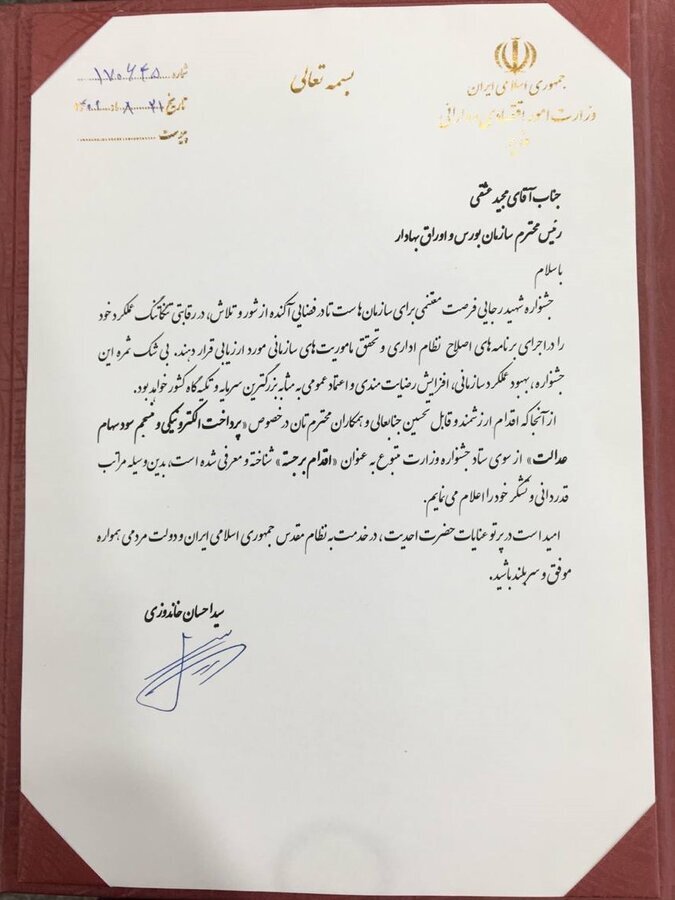 بسمه تعالی
جمهوری اسلامی ایران
وزارت امور اقتصادی و دارائی
وزیر
شماره ۱۷۰۶۴۵
تاریخ ۲۱ ۸
پیوست
جناب آقای مجید عشقی
رئیس محترم سازمان بورس و اوراق بهادار
باسلام
جشنواره شهید رجایی فرصت مغتنمی برای سازمان‌هاست تا در فضایی آکنده از شور و تلاش، در رقابتی تنگاتنگ عملکرد خود
را در اجرای برنامه‌های اصلاح نظام اداری و تحقق ماموریت‌های سازمانی مورد ارزیابی قرار دهند. بی شک ثمره این
جشنواره، بهبود عملکرد سازمانی، افزایش رضایت مندی و اعتماد عمومی به مثابه بزرگترین سرمایه و تکیه گاه کشور خواهد بود.
از آنجا که اقدام ارزشمند و قابل تحسین جنابعالی و همکاران محترم تان در خصوص «پرداخت الکترونیکی و منسجم سود سهام
عدالت» از سوی ستاد جشنواره وزارت متبوع به عنوان «اقدام برجسته» شناخته و معرفی شده است، بدین وسیله مراتب
قدردانی و تشکر خود را اعلام می نمایم.
امید است در پرتو عنایات حضرت احدیت، در خدمت به نظام مقدس جمهوری اسلامی ایران و دولت مردمی همواره
موفق و سربلند باشید.
سید احسان خاندوزی